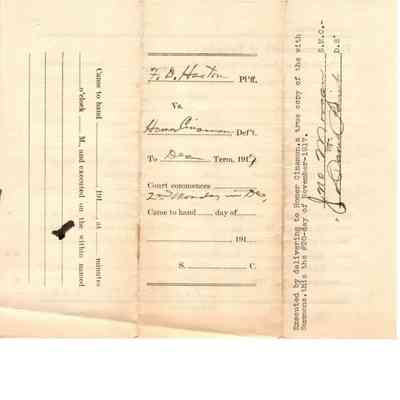 Came to hand 191 at minutes
o'clock M., and executed on the within named
F. D. Haxton Pl'ff.
Vs.
Homer Cinamon, Def't.
To Dec Term, 1917
Court commences
2nd Monday in Dec,
Came to hand day of
191
S. C.
Executed by delivering to Homer Cinamon, a true copy of the with
Summons, this the #20-day of November-1917.
Jno Morgan S.M.C.-
By Dave D.S